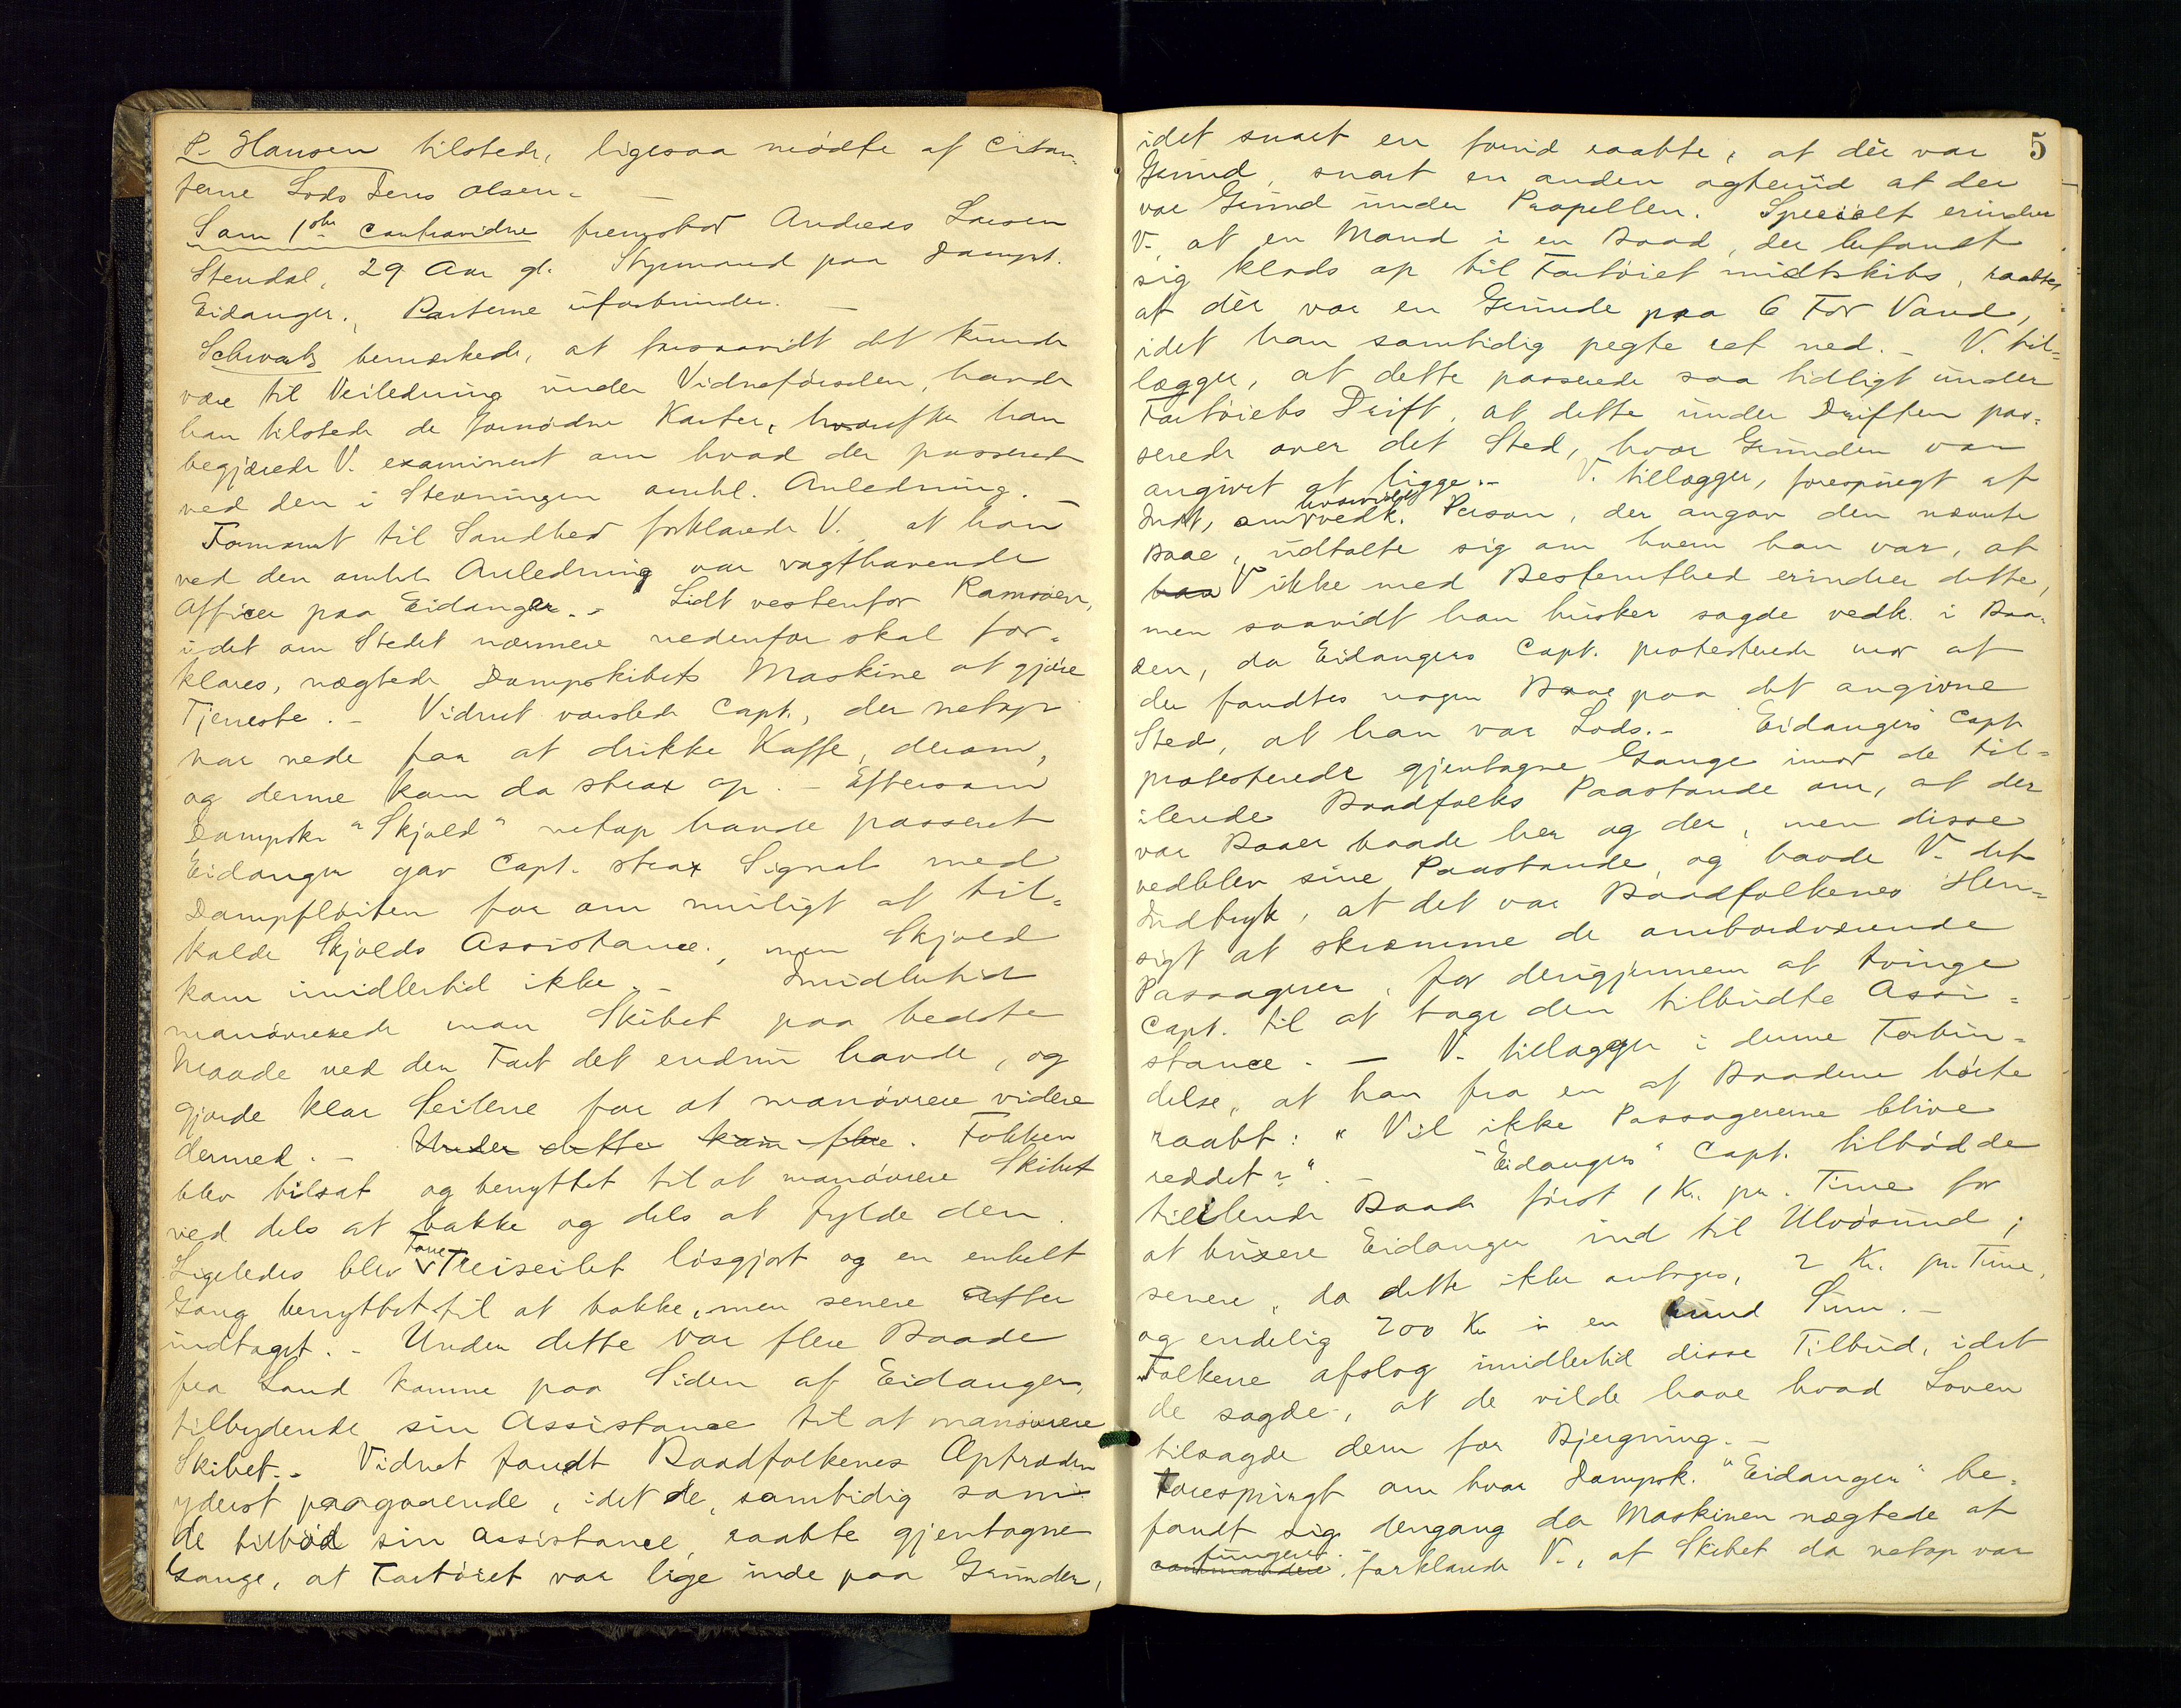 P. Hansen tilstede, ligesaa mødte af Citan-
terne Lods Jens Olsen. —
Som 1ste Contravidne fremstod Andreas Larsen
Stendal, 29 Aar gl. Styrmand paa Dampsk.
Eidanger. Parterne uforbunden. —
Schwartz bemærkede, at forsaavidt det kunde
være til Veiledning under Vidneførselen, havde
han tilstede de fornødne Karter, hvorefter han
begjærede V. examineret om hvad der passerede
ved den i Stevningen omhl. Anledning. —
Formanet til Sandhed forklarede V. at han
ved den omhl. Anledning var vagthavende
Officer paa Eidanger. - Lidt vestenfor Ramsøen,
idet om Stedet nærmere nedenfor skal for-
klares, nægtede Dampskibets Maskine at gjøre
Tjeneste. - Vidnet varslede Capt., der netop
var nede for at drikke Kaffe, derom,
og denne kom da strax op. - Eftersom
Dampsk. "Skjold" netop havde passeret
Eidanger gav Capt. strax Signal med
Dampfløiten for om muligt at til-
kalde Skjolds Assistance, men Skjold
kom imidlertid ikke. - Imidlertid
manøvrerede man Skibet paa bedste
Maade ved den Fart det endnu havde, og
gjorde klar Seilene for at manøvrere videre
dermed. - Under dette kom flere. Fokken
blev tilsat og benyttet til at manøvrere Skibet
ved dels at bakke og dels at fylde den.
Ligeledes blev Treiseilet løsgjort og en enkelt
Gang benyttet til at bakke, men senere atter
indtaget. - Under dette var flere Baade
fra Land komne paa Siden af Eidanger,
tilbydende sin Assistance til at manøvrere
Skibet. - Vidnet fandt Baadfolkenes Optræden
yderst paagaaende, idet de, samtidig som
de tilbød sin Assistance, raabte gjentagne
Gange, at Fartøiet var lige inde paa Grunder,
5
idet snart en forud raabte, at dèr var
Grund, snart en anden agterud at der
var Grund under Propellen. Specielt erindrer
V. at en Mand i en Baad, der befandt
sig klods op til Fartøiet midtskibs, raabte,
at dèr var en Grunde paa 6 Fod Vand,
idet han samtidig pegte ret ned. - V. til-
lægger, at dette passerede saa tidligt under
Fartøiets Drift, at dette under Driften pas-
serede over det Sted, hvor Grunden var
angivet at ligge. - V. tillægger, forespurgt af
Indt, om hvorvidt vedk. Person, der angav den nævnte
Baae, udtalte sig om hvem han var, at
han V ikke med Bestemthed erindrer dette,
men saavidt han husker sagde vedk. i Baa-
den, da Eidangers Capt. protesterede mod at
der fandtes nogen Baae paa det angivne
Sted, at han var Lods. - Eidangers Capt
protesterede gjentagne Gange imod de til-
ilende Baadfolks Paastande om, at der
var Baaer baade her og der, men disse
vedblev sine Paastande, og havde V. det
Indtryk, at det var Baadfolkenes Hen-
sigt at skræmme de ombordværende
Passagerer, for derigjennem at tvinge
Capt. til at tage den tilbudte Assi-
stance. — V. tillægger i denne Forbin-
delse, at han fra en af Baadene hørte
raabt: "Vil ikke Passagererne blive
reddet?" - "Eidangers" Capt. tilbødde
tililende Baade først 1 Kr. pr. Time for
at buxere Eidanger ind til Ulvøsund;
senere, da dette ikke antoges, 2 Kr. pr. Time,
og endelig 200 Kr i en rund Sum. -
Folkene afslog imidlertid disse Tilbud, idet
de sagde, at de vilde have hvad Loven
tilsagde dem for Bjergning. -
Forespurgt om hvor Dampsk. "Eidanger" be-
fandt sig dengang da Maskinen nægtede at
fungere, forklarede V., at Skibet da netop var